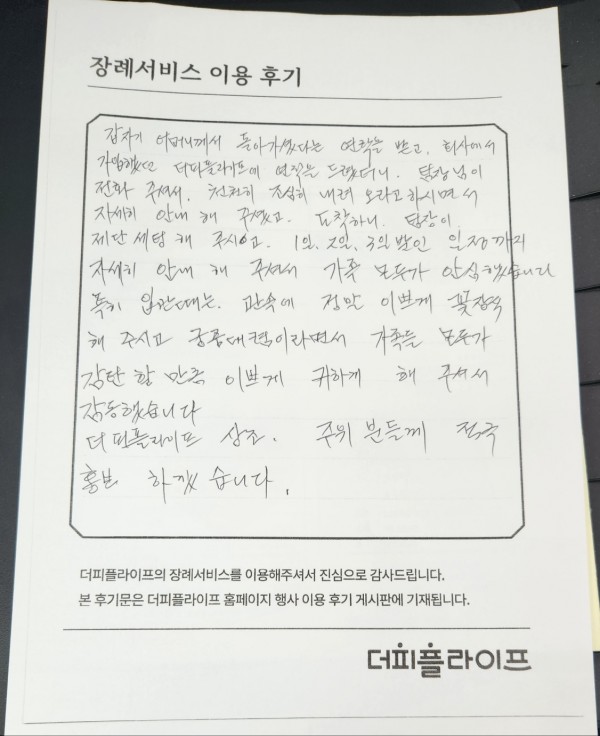 장례서비스 이용 후기
갑자기 어머니께서 돌아가셨다는 연락을 받고, 회사에서
가입했던 더피플라이프에 연락을 드렸더니. 팀장님이
전화 주셔서. 천천히 조심히 내려 오라고 하시면서
자세히 안내 해 주셨고. 도착하니. 팀장이.
제단 세팅 해 주시고. 1일, 2일, 3일 발인 일정까지
자세히 안내 해 주셔서 가족 모두가 안심했습니다
특히 입관때는. 관속에 정말 이쁘게 꽃장식
해 주시고 궁중대렴이라면서 가족들 모두가
감탄 할 만큼 이쁘게 귀하게 해 주셔서
감동했습니다
더피플라이프 상조. 주위 분들께 적극
홍보 하겠습니다.
더피플라이프의 장례서비스를 이용해주셔서 진심으로 감사드립니다.
본 후기문은 더피플라이프 홈페이지 행사 이용 후기 게시판에 기재됩니다.
더피플라이프